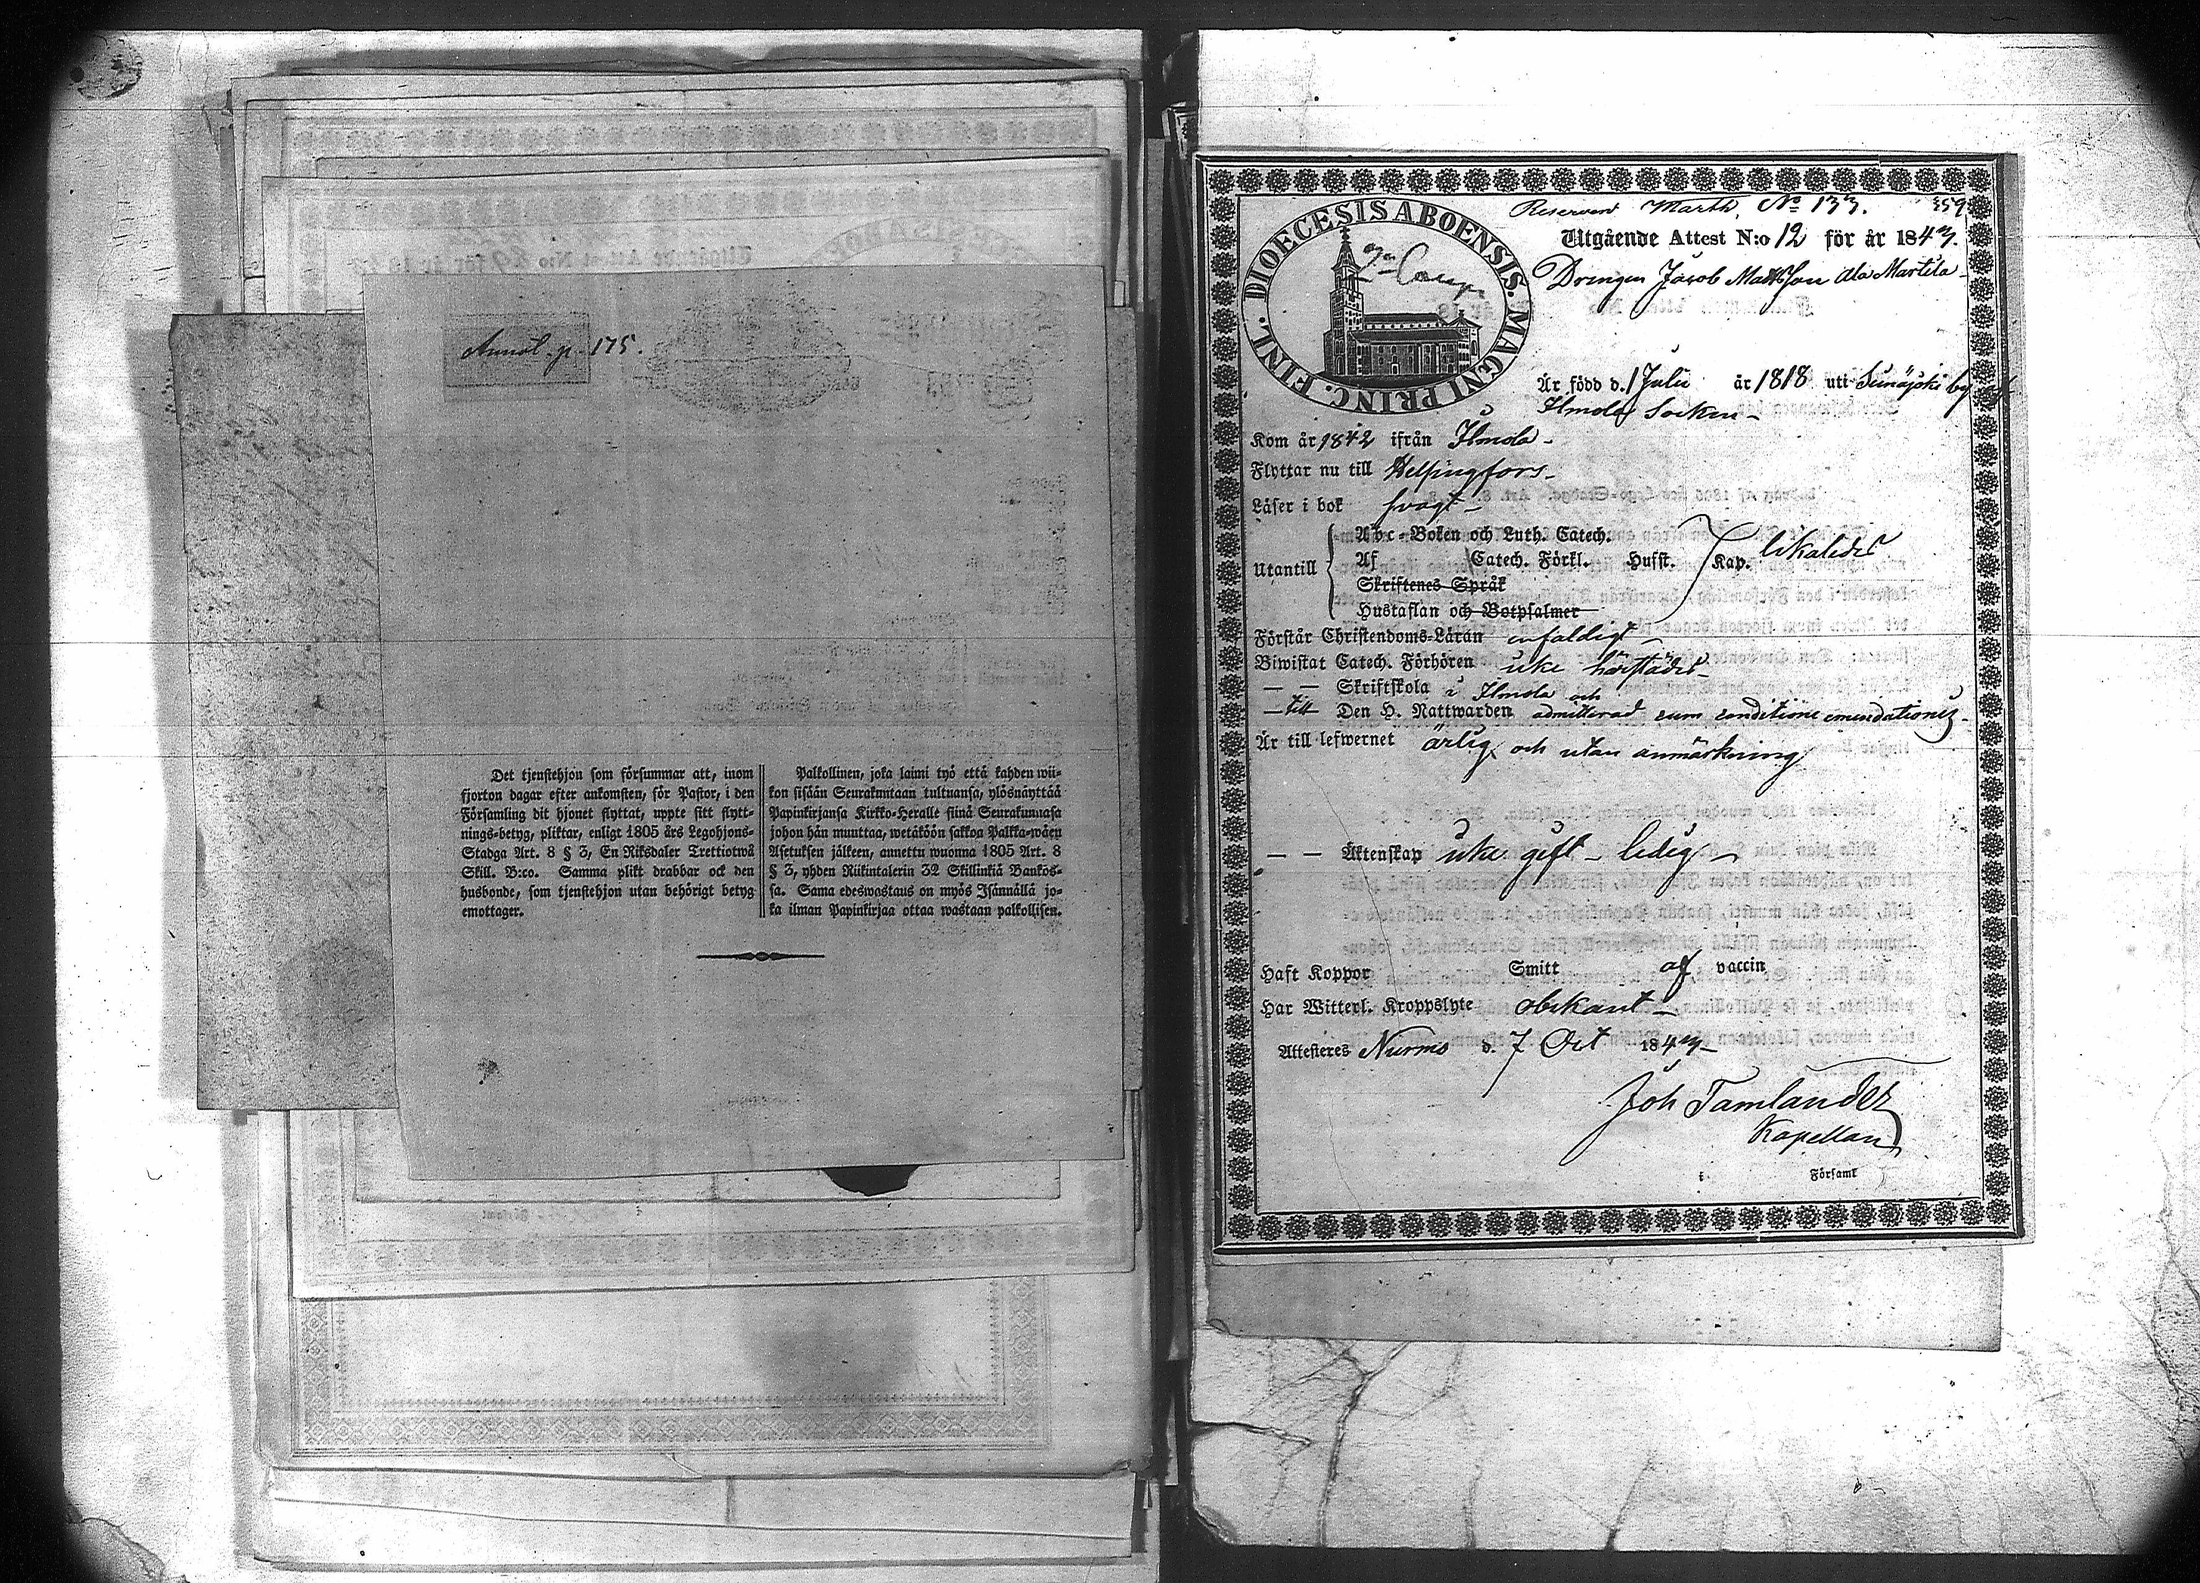 Annot. p. 175.
Det tjenstehjon som försummar att, inom
fjorton dagar efter ankomsten, för Pastor, i den
Församling dit hjonet flyttat, uppte sitt flytt-
nings-betyg, pliktar, enligt 1805 års Legohjons-
Stadga Art. 8 § 3, En Riksdaler Trettiotwå
Skill. B:co. Samma plikt drabbar ock den
husbonde, som tjenstehjon utan behörigt betyg
emottager.
Palkollinen, joka laimi lyö että kahden wii-
kon sisään Seurakuntaan tultuansa, ylösnäyttää
Papinkirjansa Kirkko-Herralle siinä Seurakunnasa
johon hän muuttaa, wetäköön sakkoa Palkka-wäen
Asetuksen jälkeen, annettu wuonna 1805 Art. 8
§ 3, yhden Riikintalerin 32 Skillinkiä Bankos-
sa. Sama edeswastaus on myös Isännällä jo-
ka ilman Papinkirjaa ottaa wastaan palkollisen.
Marth. No 133. 359
DIOECESIS ABOENSIS. MAGNI PRINC. FINL.
Utgående Attest N:o 12 för år 1843.
Drengen Jacob Mattsson Ala Martila
Är född d. 1 Julii år 1818 uti by af
Ilmola Socken
Kom år 1842 ifrån Ilmola
Flyttar nu till Helsingfors
Läser i bok swagt
Abc-Boken och Luth. Catech.
Utantill Af Catech. Förkl. Hufst. Kap. likaledes
Skriftenes Språk
Hustaflan och Botpsalmer
Förstår Christendoms-Läran enfaldigt
Biwistat Catech. Förhören icke härstädes
— — Skriftskola i Ilmola och
— till Den H. Nattwarden admitterad sum conditione emendationis
Är till lefwernet ärlig och utan anmärkning
— — Äktenskap icke gift - ledig
Haft Koppor Smitt af vaccin
Har Witterl. Kroppslyte obekant
Attesteres Nurmo d. 7 Oct 1843
Joh Tamlander
Kapellan
i Församl